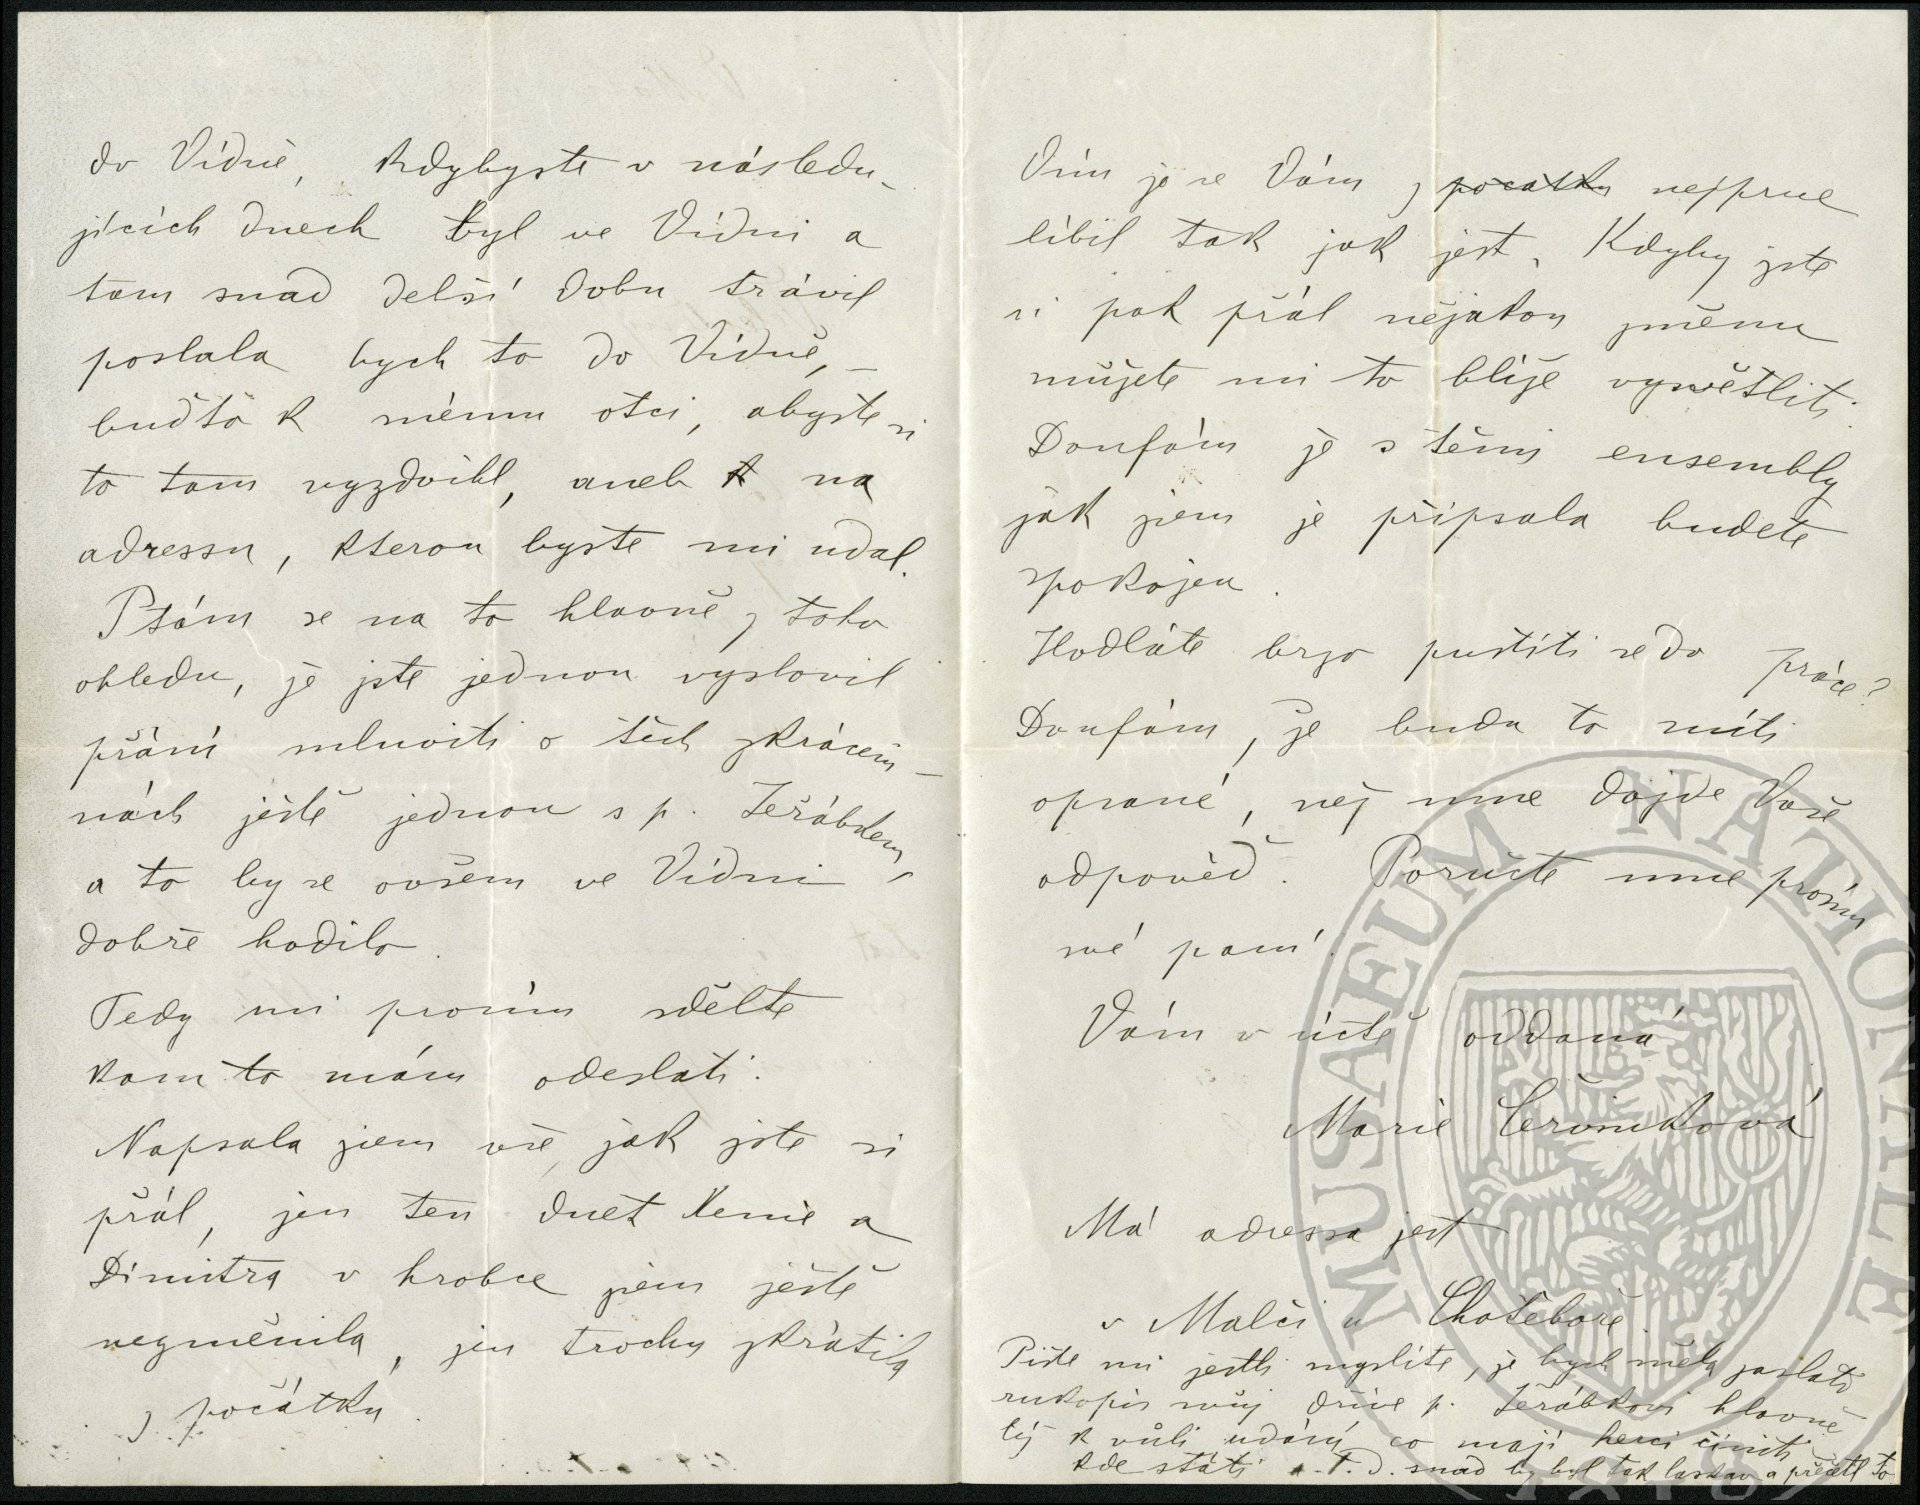 do Vídně, kdybyste v následu-
jících dnech byl ve Vídni a
tam snad delší dobu trávil
poslala bych to do Vídně, –
buďto k mému otci, abyste si
to tam vyzdvihl, aneb k na
adressu, kterou byste mi udal.
Ptám se na to hlavně z toho
ohledu, že jste jednou vyslovil
přání mluviti o těch zkráceni-
nách ještě jednou s p. Jeřábkem,
a to by se ovšem ve Vídni
dobře hodilo.
Tedy mi prosím sdělte
kam to mám odeslati.
Napsala jsem vše, jak jste si
přál, jen ten duet Xenie a
Dimitra v hrobce jsem ještě
nezměnila, jen trochu zkrátila
z počátku.
Vím že se Vám z počátku nejprve
líbil tak jak jest. Kdyby jste
si pak přál nějakou změnu
můžete mi to blíže vysvětliti.
Doufám že s těmi ensembly
jak jsem je připsala budete
spokojen.
Hodláte brzo pustiti se do práce?
Doufám, že budu to míti
opsané, než mne dojde Vaše
odpověď. Poručte mne prosím
své paní.
Vám v úctě oddaná
Marie Červinková
Má adressa jest
v Malči u Chotěboře.
Pište mi jestli myslíte, že bych měla zaslati
rukopis můj dříve p. Jeřábkovi hlavně
též k vůli udání co mají herci činiti
kde státi a. t. d. snad by byl tak laskav a přečetl to
MUSAEUM NATIONALE
1818